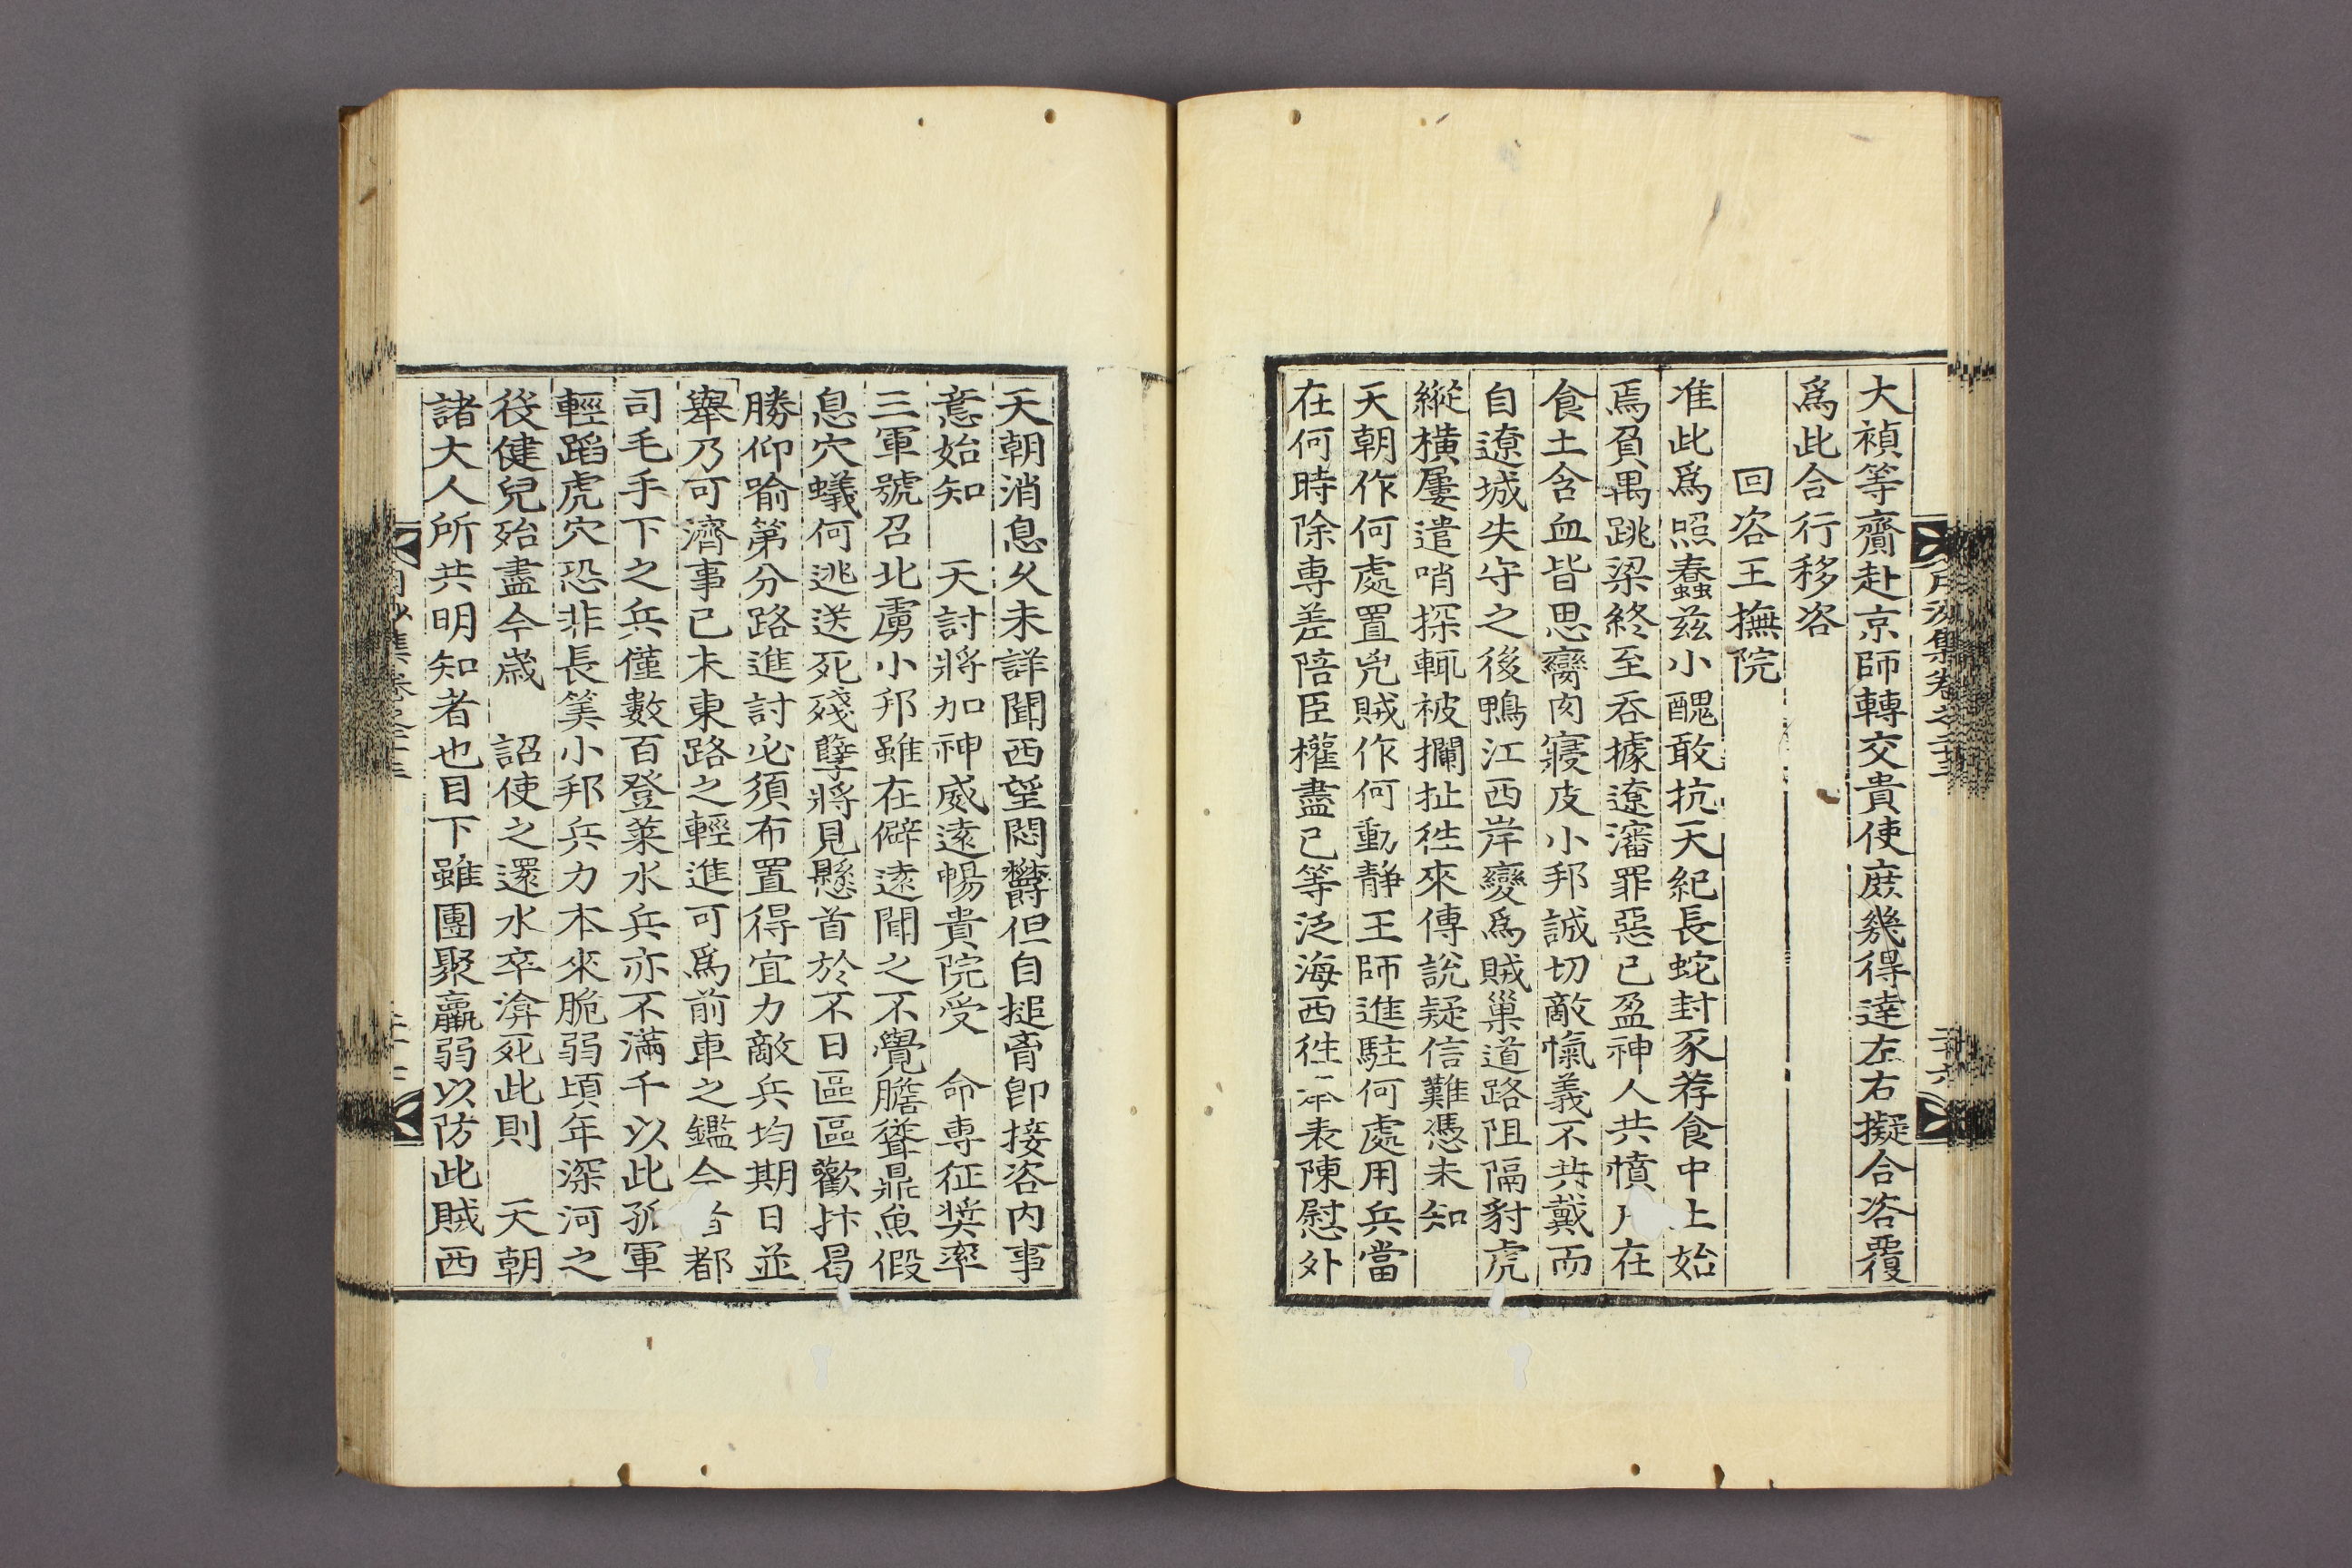 大禎等齎赴京師轉交貴使庶幾得達左右擬合咨覆
爲此合行移咨
回咨王撫院
准此爲照蠢玆小醜敢抗天紀長蛇封豕荐食中土始
焉負禺跳梁終至呑據遼瀋罪惡已盈神人共憤凡在
食土含血皆思臠肉寢皮小邦誠切敵愾義不共戴而
自遼城失守之後鴨江西岸變爲賊巢道路阻隔豺虎
縱橫屢遣哨探輒被攔扯徃來傳說疑信難憑未知
天朝作何處置兇賊作何動靜王師進駐何處用兵當
在何時除專差陪臣權盡己等泛海西徃一本表陳慰外
月沙集卷之二十三
天朝消息久未詳聞西望悶欝但自搥膺卽接咨內事
意始知 天討將加神威遠暢貴院受 命專征奬率
三軍號召北虜小邦雖在僻遠聞之不覺膽聳鼎魚假
息穴蟻何逃送死殘孽將見懸首於不日區區歡抃曷
勝仰喩第分路進討必須布置得宜力敵兵均期日並
擧乃可濟事己未東路之輕進可爲前車之鑑今 都
司毛手下之兵僅數百登萊水兵亦不滿千以此孤軍
輕蹈虎穴恐非長筭小邦兵力本來脆弱頃年深河之
役健兒殆盡今歲 詔使之還水卒渰死此則 天朝
諸大人所共明知者也目下雖團聚羸弱以防此賊西